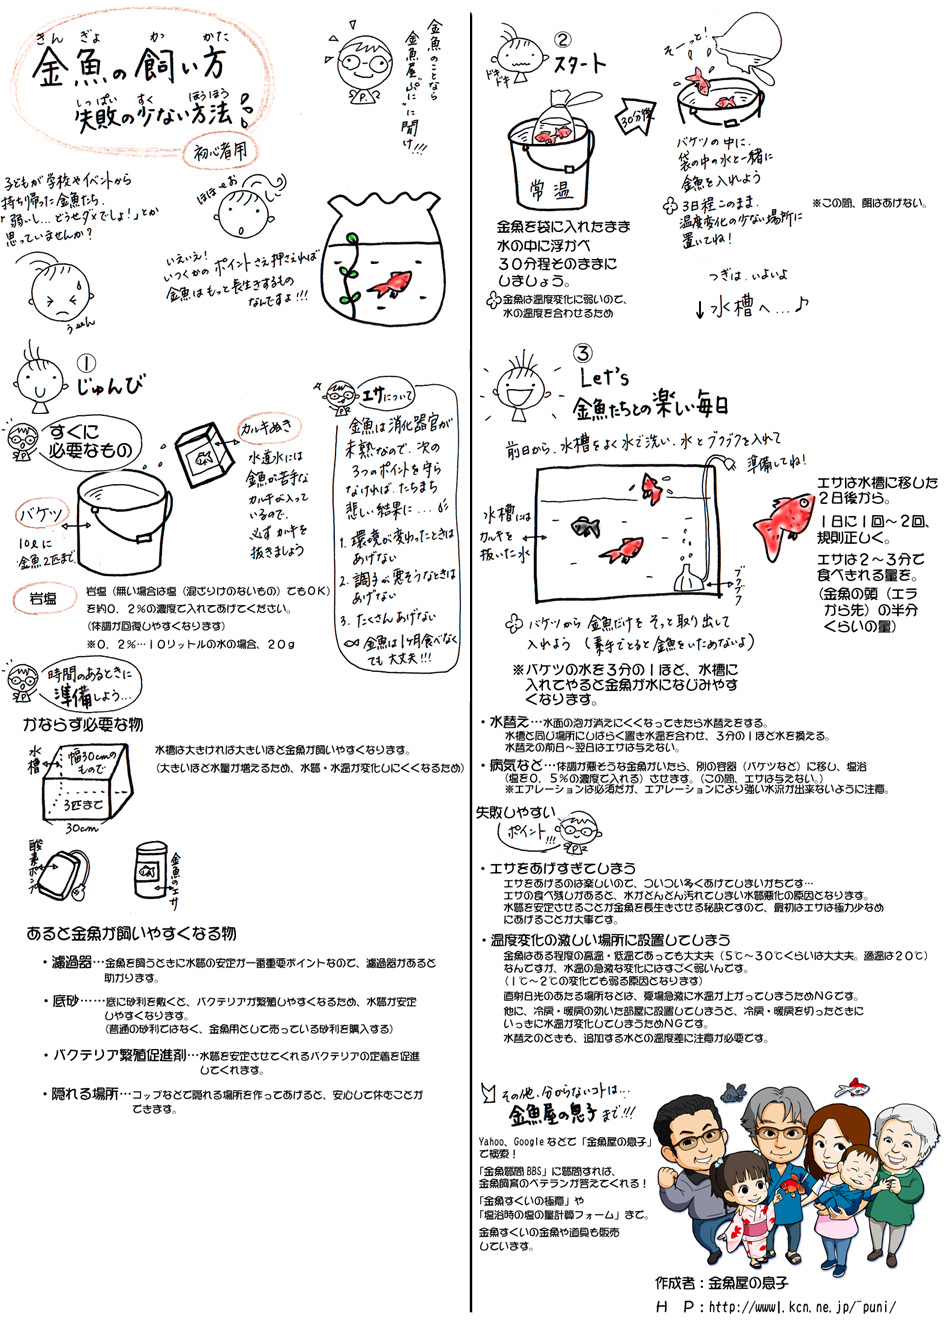 きん ぎょ か かた
金魚の飼い方
しっぱい すく ほうほう
失敗の少ない方法!
初心者用
金魚のことなら
金魚屋"ぷに"に聞け!!!
P
子どもが学校やイベントから
持ち帰った金魚たち、
「弱いし…どうせダメでしょ!」とか
思っていませんか?
う〜ん
ほほ〜お
いえいえ!
いくつかのポイントさえ押さえれば
金魚はもっと長生きするもの
なんですよ!!!
①
じゅんび
すぐに
必要なもの
P
カルキぬき
水道水には
金魚が苦手な
カルキが入って
いるので、
必ずカルキを
抜きましょう
バケツ
10ℓに
金魚2匹まで
岩塩
岩塩(無い場合は塩(混ざりけのないもの)でもOK)
を約0.2%の濃度で入れてあげてください。
(体調が回復しやすくなります)
※0.2%…10リットルの水の場合、20g
エサについて
P
金魚は消化器官が
未熟なので、次の
3つのポイントを守ら
なければ、たちまち
悲しい結果に…
1. 環境が変わったときは
あげない
2. 調子が悪そうなときは
あげない
3. たくさんあげない
金魚は1ヶ月食べなく
ても大丈夫!!!
P
時間のあるときに
準備しよう…
かならず必要な物
水槽
幅30cmの
もので
3匹まで
30cm
水槽は大きければ大きいほど金魚が飼いやすくなります。
(大きいほど水量が増えるため、水質・水温が変化しにくくなるため)
酸素ポンプ
金魚のエサ
あると金魚が飼いやすくなる物
・濾過器…金魚を飼うときに水質の安定が一番重要ポイントなので、濾過器があると
助かります。
・底砂……底に砂利を敷くと、バクテリアが繁殖しやすくなるため、水質が安定
しやすくなります。
(普通の砂利ではなく、金魚用として売っている砂利を購入する)
・バクテリア繁殖促進剤…水質を安定させてくれるバクテリアの定着を促進
してくれます。
・隠れる場所…コップなどで隠れる場所を作ってあげると、安心して休むことが
できます。
②
スタート
ドキドキ
常温
30分後
そーっと!
金魚を袋に入れたまま
水の中に浮かべ
30分程そのままに
しましょう。
金魚は温度変化に弱いので、
水の温度を合わせるため
バケツの中に、
袋の中の水と一緒に
金魚を入れよう
3日程このまま、
温度変化の少ない場所に
置いてね!
※この間、餌はあげない。
つぎは、いよいよ
↓水槽へ…♪
③
Let's
金魚たちとの楽しい毎日
前日から、水槽をよく水で洗い、水とブクブクを入れて
準備してね!
水槽には
カルキを
抜いた水
ブクブク
エサは水槽に移した
2日後から。
1日に1回〜2回、
規則正しく。
エサは2〜3分で
食べきれる量を。
(金魚の頭(エラ
から先)の半分
くらいの量)
バケツから金魚だけをそっと取り出して
入れよう(素手でとると金魚をいためないよ)
※バケツの水を3分の1ほど、水槽に
入れてやると金魚が水になじみやす
くなります。
・水替え…水面の泡が消えにくくなってきたら水替えをする。
水槽と同じ場所にしばらく置き水温を合わせ、3分の1ほど水を換える。
水替えの前日〜翌日はエサは与えない。
・病気など…体調が悪そうな金魚がいたら、別の容器(バケツなど)に移し、塩浴
(塩を0.5%の濃度で入れる)させます。(この間、エサは与えない。)
※エアレーションは必須だが、エアレーションにより強い水流が出来ないように注意。
失敗しやすい
ポイント!!!
P
・エサをあげすぎてしまう
エサをあげるのは楽しいので、ついつい多くあげてしまいがちです…
エサの食べ残しがあると、水がどんどん汚れてしまい水質悪化の原因となります。
水質を安定させることが金魚を長生きさせる秘訣ですので、最初はエサは極力少なめ
にあげることが大事です。
・温度変化の激しい場所に設置してしまう
金魚はある程度の高温・低温であっても大丈夫(5℃〜30℃くらいは大丈夫。適温は20℃)
なんですが、水温の急激な変化にはすごく弱いんです。
(1℃〜2℃の変化でも弱る原因となります)
直射日光のあたる場所などは、夏場急激に水温が上がってしまうためNGです。
他に、冷房・暖房の効いた部屋に設置してしまうと、冷房・暖房を切ったときに
いっきに水温が変化してしまうためNGです。
水替えのときも、追加する水との温度差に注意が必要です。
その他、分からないコトは…
金魚屋の息子まで!!!
Yahoo、Googleなどで「金魚屋の息子」
で検索!
「金魚質問BBS」に質問すれば、
金魚飼育のベテランが答えてくれる!
「金魚すくいの極意」や
「塩浴時の塩の量計算フォーム」まで。
金魚すくいの金魚や道具も販売
しています。
作成者:金魚屋の息子
H P:http://www1.kcn.ne.jp/~puni/